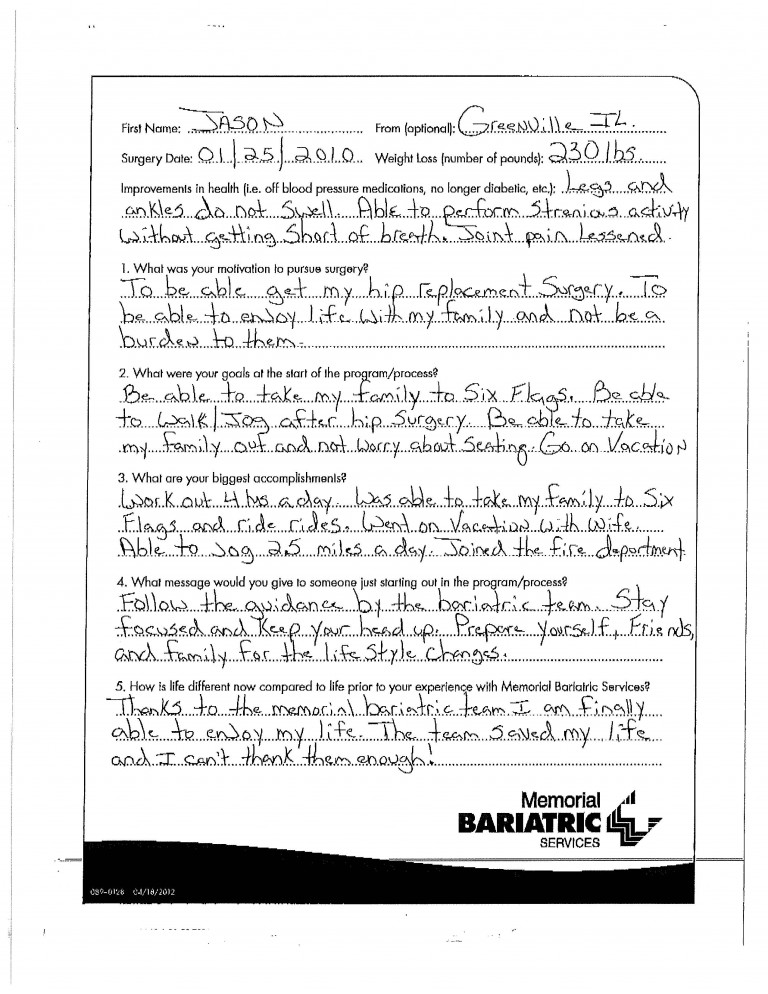 First Name: JASON From (optional): Greenville IL.
Surgery Date: 01/25/2010 Weight Loss (number of pounds): 230 lbs.
Improvements in health (i.e. off blood pressure medications, no longer diabetic, etc.): Legs and
ankles do not Swell. Able to perform Strenious activity
Without getting Short of breath. Joint pain Lessened.
1. What was your motivation to pursue surgery?
To be able get my hip replacement Surgery. To
be able to enjoy life With my family and not be a
burden to them.
2. What were your goals at the start of the program/process?
Be able to take my family to Six Flags. Be able
to Walk/Jog after hip Surgery. Be able to take
my family out and not Worry about Seating. Go on Vacation
3. What are your biggest accomplishments?
Work out 4 hrs a day. Was able to take my family to Six
Flags and ride rides. Went on Vacation With Wife.
Able to Jog 2.5 miles a day. Joined the fire department.
4. What message would you give to someone just starting out in the program/process?
Follow the guidance by the bariatric team. Stay
focused and Keep your head up. Prepare yourself, Friends,
and family for the life Style Changes.
5. How is life different now compared to life prior to your experience with Memorial Bariatric Services?
Thanks to the memorial bariatric team I am finally
able to enjoy my life. The team Saved my life
and I can't thank them enough!
Memorial
BARIATRIC
SERVICES
089-0126 04/18/2012